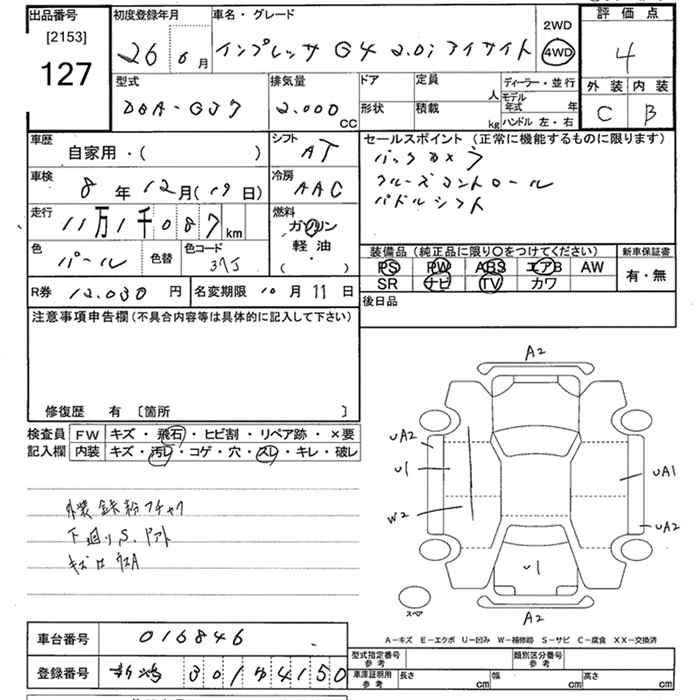 出品番号
[2153]
127
初度登録年月
26 6月
車名・グレード
インプレッサ G4 2.0i アイサイト
2WD
4WD
評価点
4
外装 内装
C B
型式
DBA-GJ7
排気量
2.000 CC
ドア
形状
定員 人
積載 kg
ディーラー・並行
モデル年式 年
ハンドル 左・右
車歴
自家用・( )
シフト
AT
セールスポイント (正常に機能するものに限ります)
バックカメラ
クルーズコントロール
パドルシフト
車検
8年12月(19日)
冷房
AAC
走行
11万1千087km
燃料
ガソリン
軽油
( ・ )
色
パール
色替
色コード
37J
装備品 (純正品に限り○をつけてください)
PS PW ABS エアB AW
SR ナビ TV カワ
新車保証書
有・無
R券 12.030円
名変期限 10月11日
後日品
注意事項申告欄 (不具合内容等は具体的に記入して下さい)
修復歴 有 [箇所 ]
検査員 FW キズ・飛石・ヒビ割・リペア跡・×要
記入欄 内装 キズ・汚レ・コゲ・穴・スレ・キレ・破レ
外装 鉄粉
下廻りS.
A2
uA2
u1
W2
uA1
uA2
u1
A2
スペア
A-キズ E-エクボ U-凹み W-補修跡 S-サビ C-腐食 XX-交換済
車台番号 016846
登録番号 301 4150
型式指定番号 参考
類別区分番号 参考
車庫証明用 参考 長さ cm 幅 cm 高さ cm